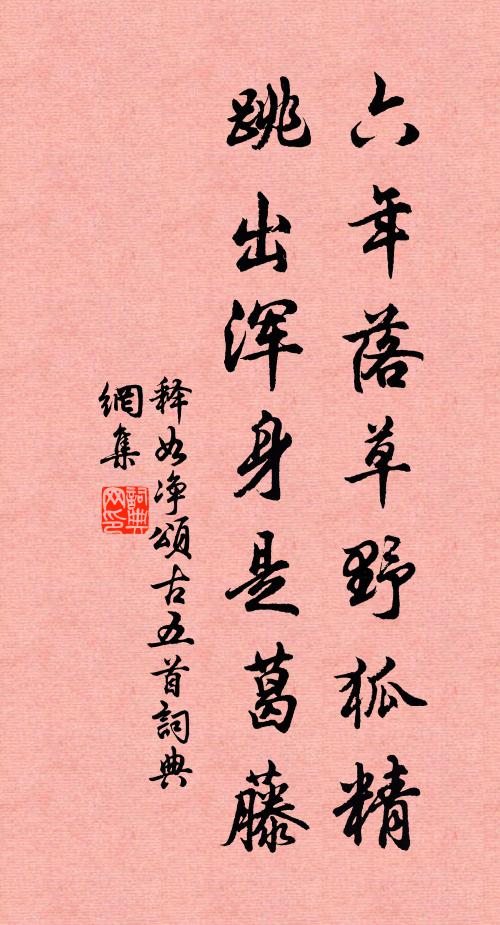 六年落草野狐精
跳出浑身是葛藤
释如净頌古五首詞典
網集
詞典
网印